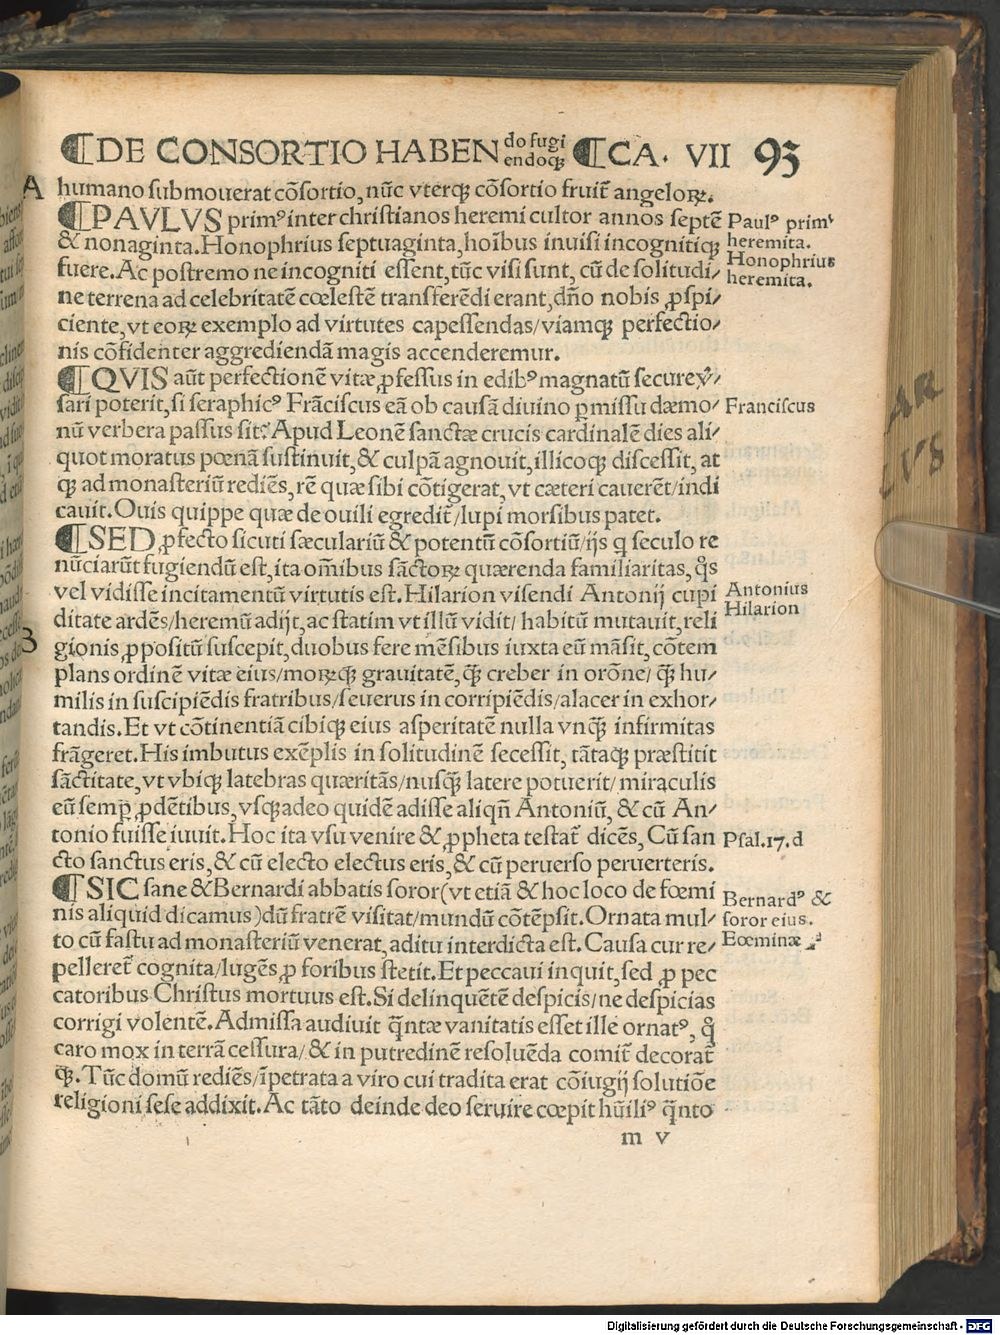 ¶DE CONSORTIO HABEN do fugi endoqꝫ ¶CA. VII 93
A humano submouerat cõsortio, nũc vterqꝫ cõsortio fruit̃ angeloꝝ.
¶PAVLVS primꝰ inter christianos heremi cultor annos septẽ
Paulꝰ primꝰ
& nonaginta. Honophrius septuaginta, hoĩbus inuisi incognitiqꝫ
heremita.
Honophrius
fuere. Ac postremo ne incogniti essent, tũc visi sunt, cũ de solitudi/
heremita.
ne terrena ad celebritatẽ cœlestẽ transferẽdi erant, dño nobis ꝓspi/
ciente, vt eoꝝ exemplo ad virtutes capessendas/viamqꝫ perfectio/
nis cõfidenter aggrediendã magis accenderemur.
¶QVIS aũt perfectionẽ vitæ ꝓfessus in edibꝰ magnatũ secure ṽ/
sari poterit, si seraphicꝰ Frãciscus eã ob causã diuino ꝑmissu dæmo/
Franciscus
nũ verbera passus sit? Apud Leonẽ sanctæ crucis cardinalẽ dies ali/
quot moratus pœnã sustinuit, & culpã agnouit, illicoqꝫ discessit, at
qꝫ ad monasteriũ rediẽs, rẽ quæ sibi cõtigerat, vt cæteri cauerẽt/indi
cauit. Ouis quippe quæ de ouili egredit̃/lupi morsibus patet.
¶SED ꝓfecto sicuti sæculariũ & potentũ cõsortiũ/ijs q seculo re
nũciarũt fugiendũ est, ita om̃ibus sãctoꝝ quærenda familiaritas, q̃s
vel vidisse incitamentũ virtutis est. Hilarion visendi Antonij cupi
Antonius
Hilarion
ditate ardẽs/heremũ adijt, ac statim vt illũ vidit/ habitũ mutauit, reli
B gionis ꝓpositũ suscepit, duobus fere mẽsibus iuxta eũ mãsit, cõtem
plans ordinẽ vitæ eius/moꝝqꝫ grauitatẽ, q̃ꝫ creber in orõne/ q̃ꝫ hu/
milis in suscipiẽdis fratribus/seuerus in corripiẽdis/alacer in exhor/
tandis. Et vt cõtinentiã cibiqꝫ eius asperitatẽ nulla vnq̃ꝫ infirmitas
frãgeret. His imbutus exẽplis in solitudinẽ secessit, tãtaqꝫ præstitit
sãctitate, vt vbiqꝫ latebras quæritãs/nusq̃ꝫ latere potuerit/ miraculis
eũ semꝑ ꝓdẽtibus, vsqꝫadeo quidẽ adisse aliqñ Antoniũ, & cũ An/
tonio fuisse iuuit. Hoc ita vsu venire & ꝓpheta testat̃ dicẽs, Cũ san
Psal.17.d
cto sanctus eris, & cũ electo electus eris, & cũ peruerso peruerteris.
¶SIC sane & Bernardi abbatis soror (vt etiã & hoc loco de fœmi
Bernardꝰ &
nis aliquid dicamus) dũ fratrẽ visitat/mundũ cõtẽpsit. Ornata mul/
soror eius.
to cũ fastu ad monasteriũ venerat, aditu interdicta est. Causa cur re/
Eœminæ
pelleret̃ cognita/lugẽs ꝓ foribus stetit. Et peccaui inquit, sed ꝓ pec
catoribus Christus mortuus est. Si delinquẽtẽ despicis/ne despicias
corrigi volentẽ. Admissa audiuit q̃ntæ vanitatis esset ille ornatꝰ, q̃
caro mox in terrã cessura/ & in putredinẽ resoluẽda comit̃ decorat̃
qꝫ. Tũc domũ rediẽs/ĩpetrata a viro cui tradita erat cõiugij solutiõe
religioni sese addixit. Ac tãto deinde deo seruire cœpit hũiliꝰ q̃nto
m v
AR
Digitalisierung gefördert durch die Deutsche Forschungsgemeinschaft - DFG